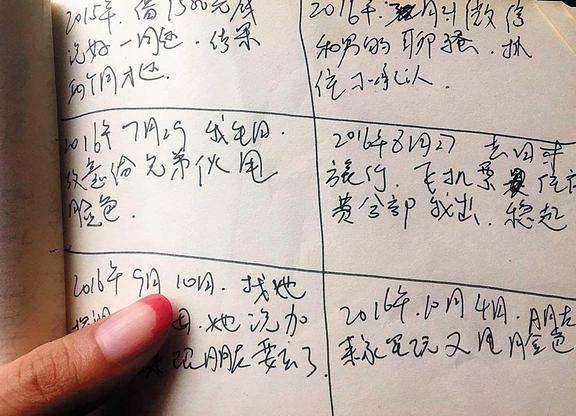 2015年.借1500元钱
说好一周还.结果
两个月才还.
2016年.3月21微信
和男的聊骚.抓
住不承认.
2016年7月29 我生日.
故意给兄弟伙甩
脸色.
2016年8月27 去日本
旅行.飞机票 住宿
费全部我出.稳起
2016年9月10日.找她
她说加
来玩朋友要去了.
2016年.10月4日.朋友
来家里玩又甩脸色